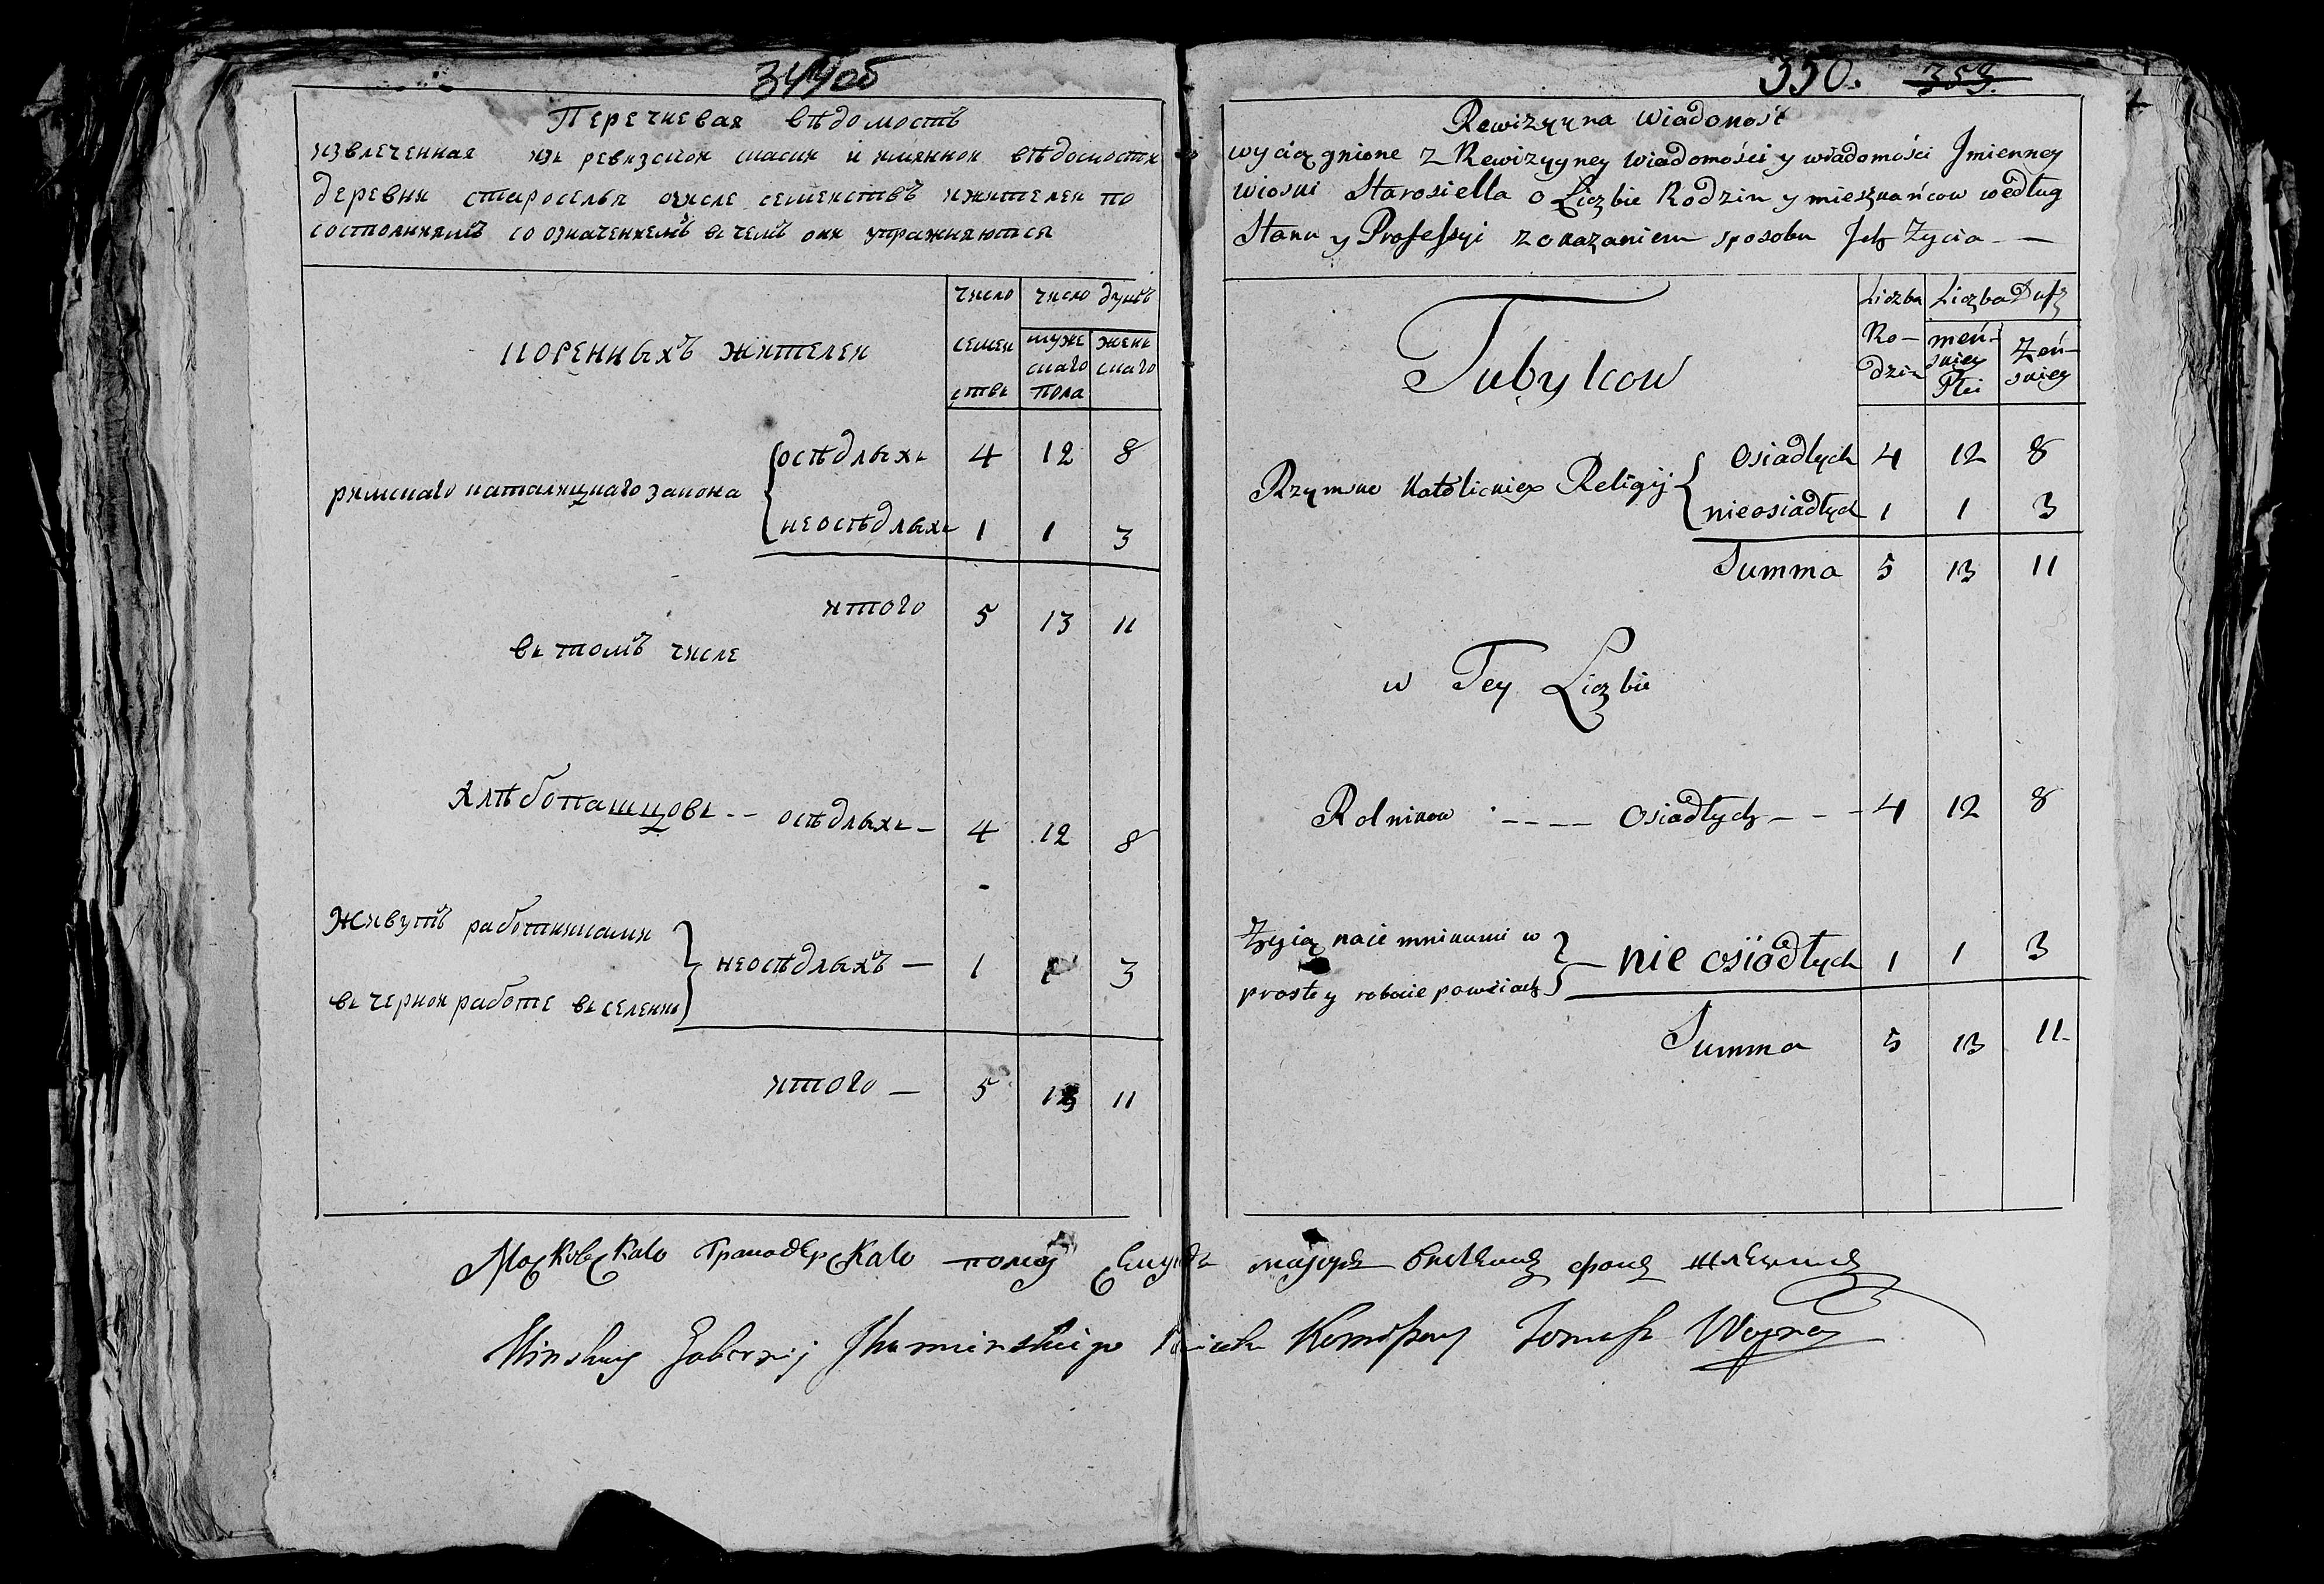 349об
Перечневая вѣдомость
извлеченная изъ ревизской сказки и имянной вѣдомости
деревни старосельи очисле семействъ ижителей по
состояниямъ со означениемъ въ чемъ они упражняются
коренныхъ жителей
число семействъ
число душъ
мужескаго пола
женскаго
римскаго католицкаго закона
осѣдлыхъ 4 12 8
неосѣдлыхъ 1 1 3
итого 5 13 11
въ томъ числе
хлѣбопашцовъ -- осѣдлыхъ — 4 12 8
живутъ работниками
въ черной работе въ селении
неосѣдлыхъ — 1 1 3
итого — 5 13 11
350. 353.
Rewizyyna Wiadomość
wyciągnione z Rewizyyney Wiadomości y wiadomości Jmienney
wioski Starosiella o Liczbie Rodzin y mieszkańcow według
Stanu y Professyi z okazaniem sposobu Jch Życia —
Tubylcow
Liczba Rodzin
Liczba Dusz
męńskiey Płci
Żeńskiey
Rzymsko Katolickiey Religij
Osiadłych 4 12 8
nieosiadłych 1 1 3
Summa 5 13 11
w Tey Liczbie
Rolnikow ---- Osiadłych --- 4 12 8
Żyią naiemnikami w
prostey robocie powsiach
nie osiadłych 1 1 3
Summa 5 13 11
Московскаго Гранодерскаго полку маиоръ фонъ
Minskiey Gubernij Ihuminskiego Tomasz